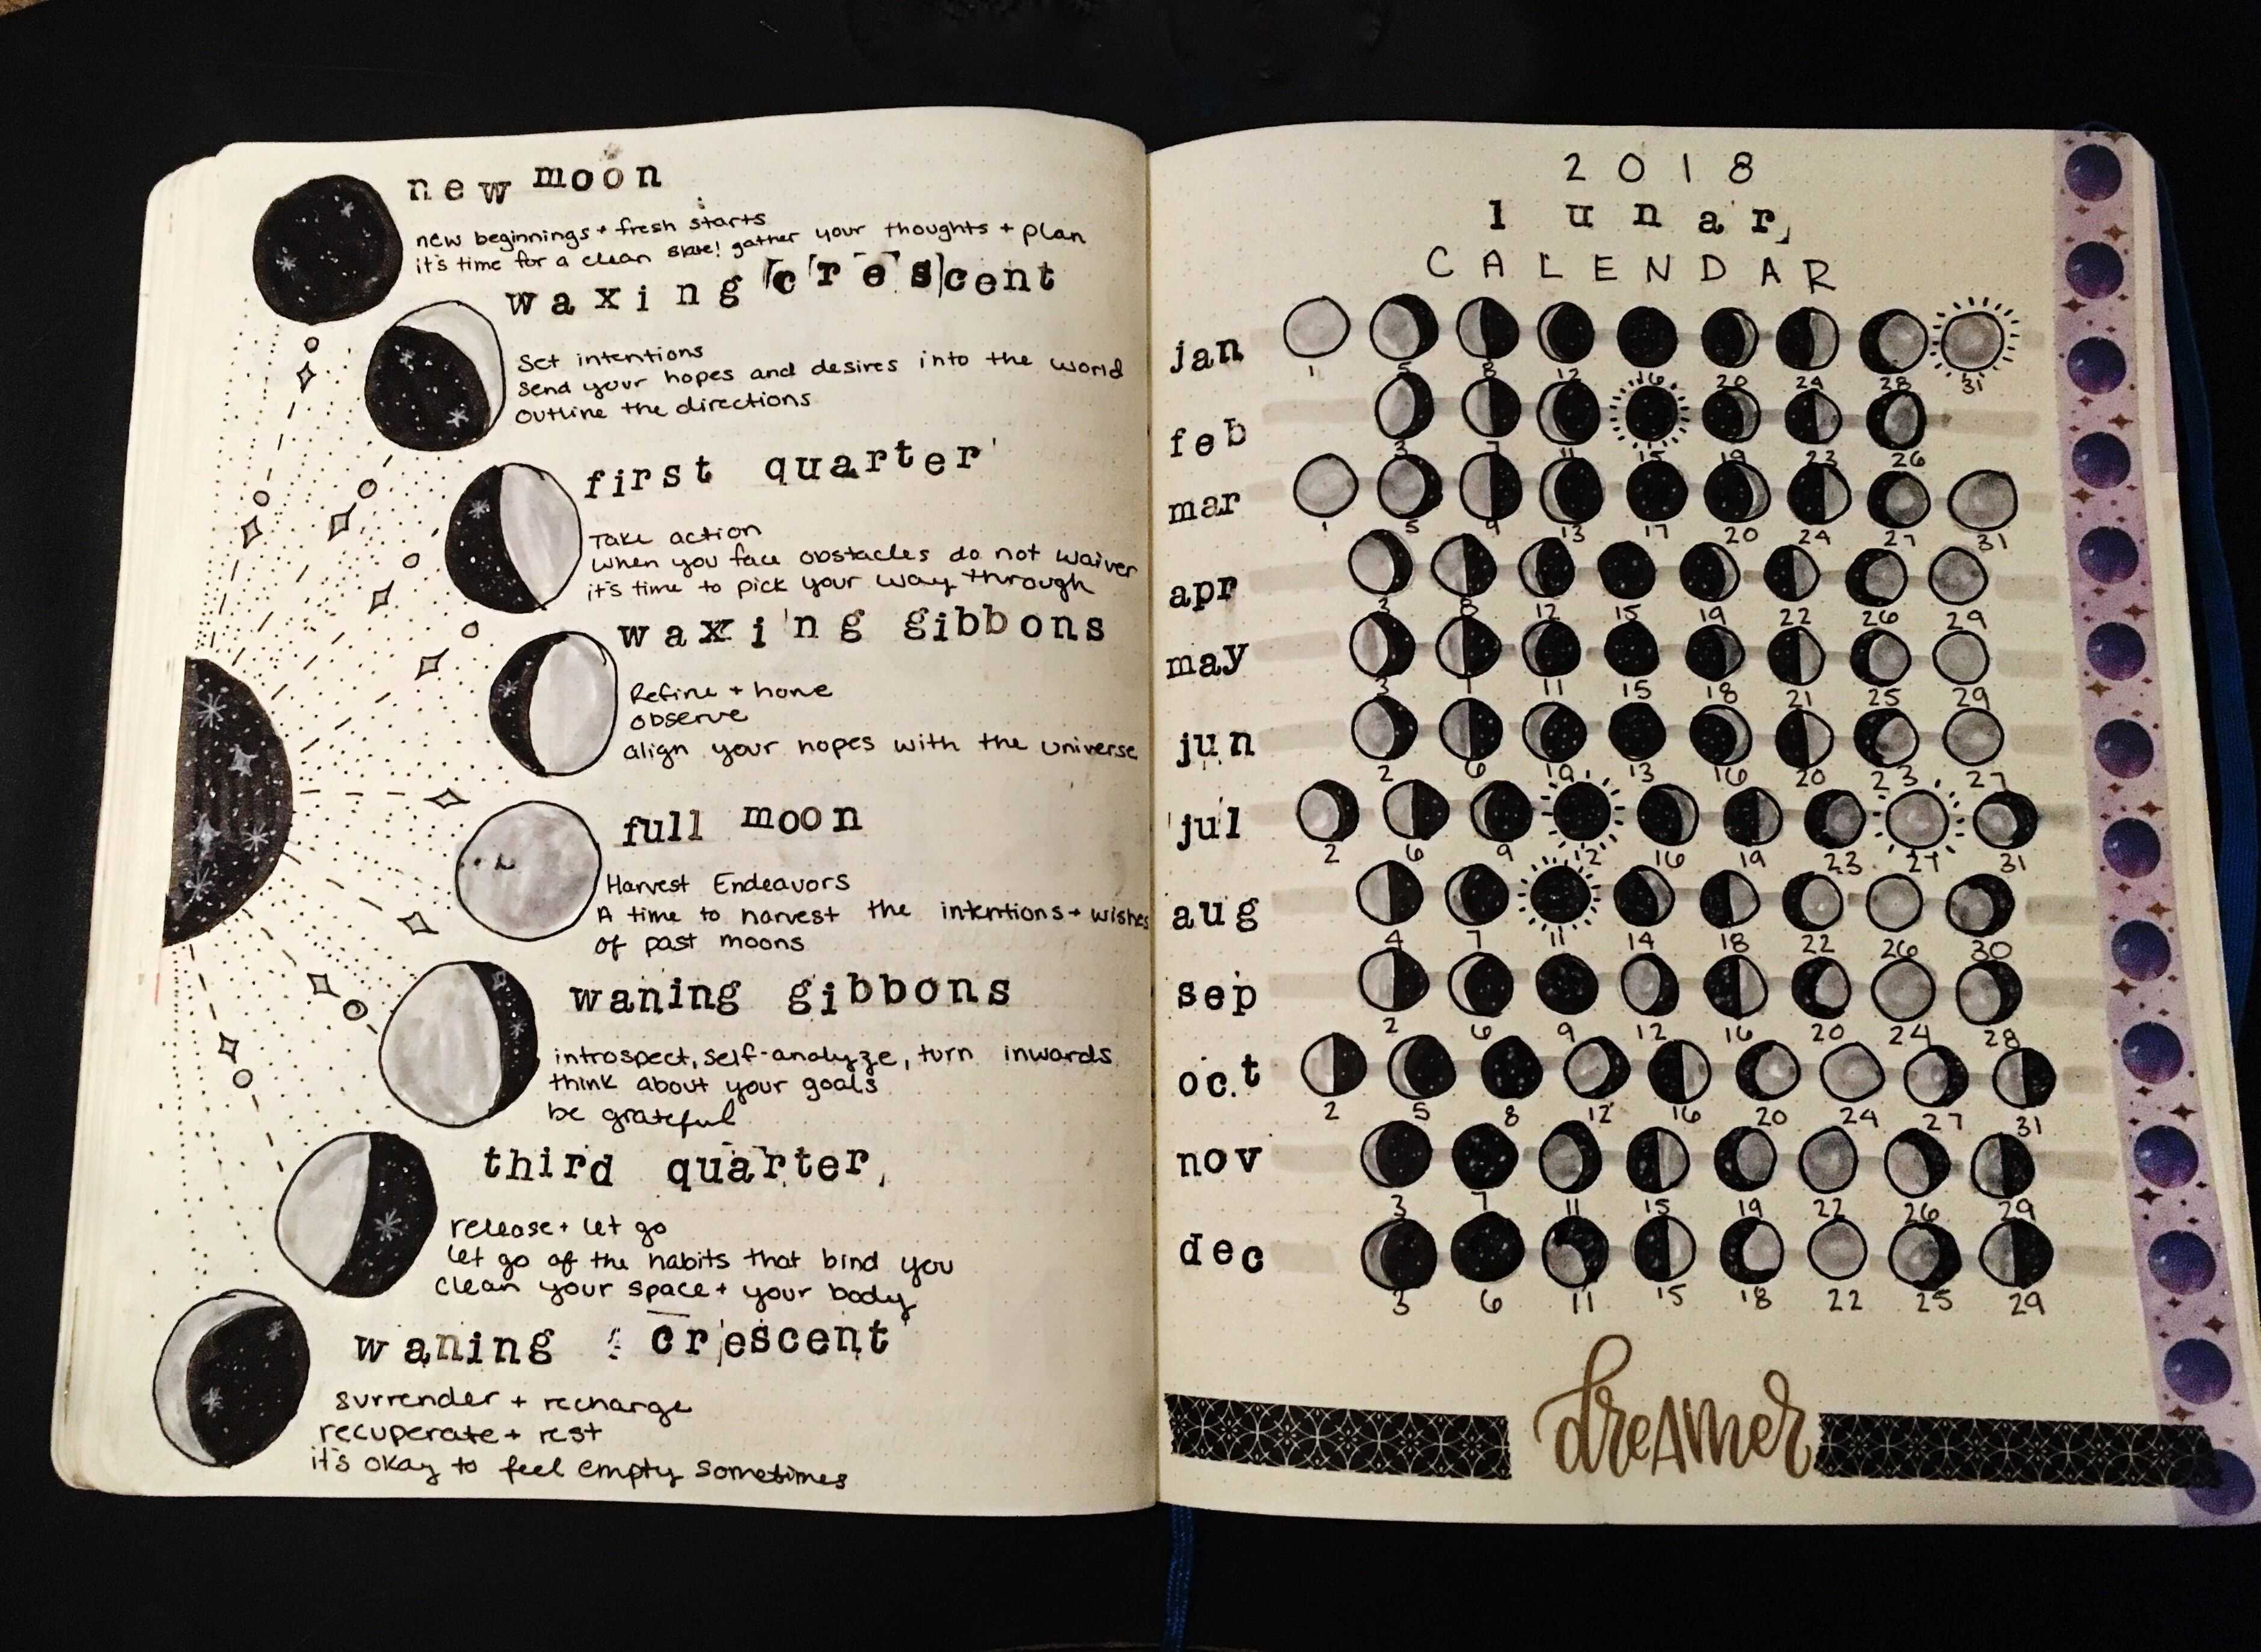 new moon
new beginnings + fresh starts
it's time for a clean slate! gather your thoughts + plan
waxing crescent
Set intentions
Send your hopes and desires into the world
Outline the directions
first quarter
Take action
when you face obstacles do not waiver
it's time to pick your way through
waxing gibbons
Refine + hone
observe
align your hopes with the universe
full moon
Harvest Endeavors
A time to harvest the intentions + wishes
of past moons
waning gibbons
introspect, self-analyze, turn inwards
think about your goals
be grateful
third quarter
release + let go
let go of the habits that bind you
clean your space + your body
waning crescent
surrender + recharge
recuperate + rest
it's okay to feel empty sometimes
2018
lunar
CALENDAR
jan
1 5 8 12 16 20 24 28 31
feb
3 7 11 15 19 23 26
mar
1 5 9 13 17 20 24 27 31
apr
3 8 12 15 19 22 26 29
may
3 7 11 15 18 21 25 29
jun
2 6 10 13 16 20 23 27
jul
2 6 9 12 16 19 23 27 31
aug
4 7 11 14 18 22 26 30
sep
2 6 9 12 16 20 24 28
oct
2 5 8 12 16 20 24 27 31
nov
3 7 11 15 19 22 26 29
dec
3 6 11 15 18 22 25 29
dreamer